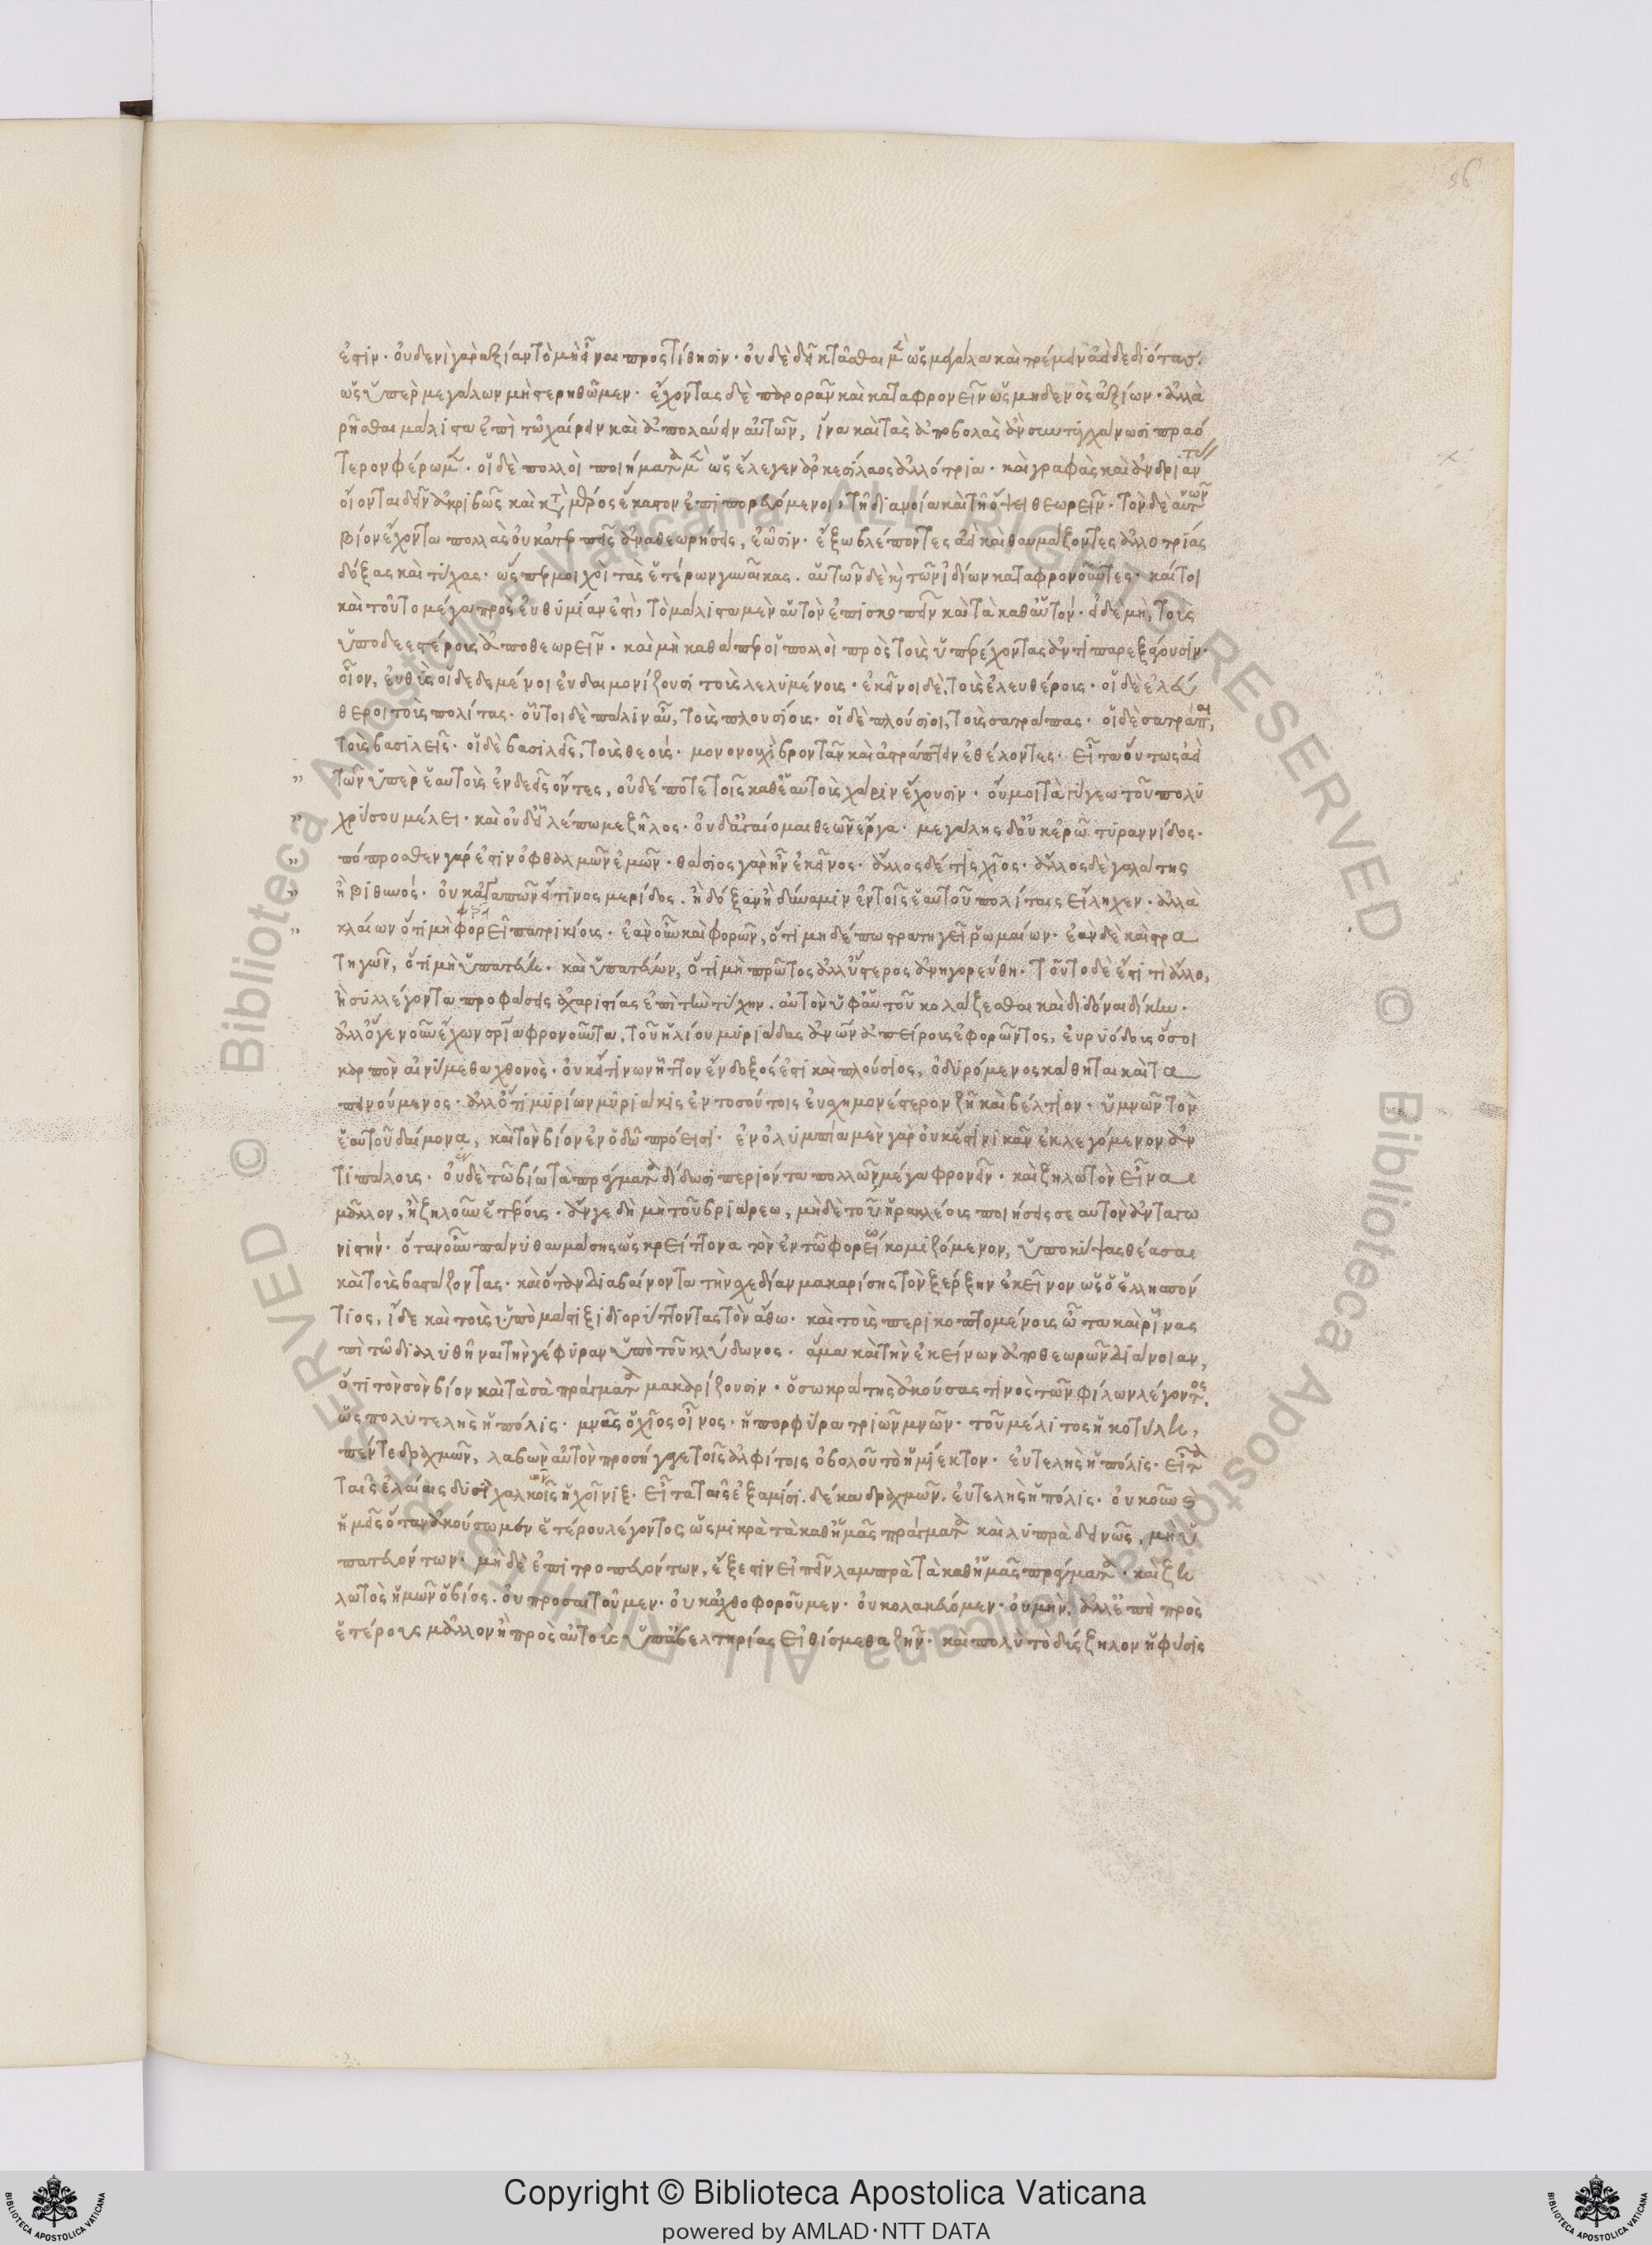 56
ἐστιν· οὐδενὶ γὰρ ἀξίαν τὸ μὴ εἶναι προστίθησιν· οὐδὲ δεῖ κτᾶσθαι μὲν ὡς μεγάλα καὶ τρέμειν ἀεὶ δεδιότας.
ὡς ὑπὲρ μεγάλων μὴ στερηθῶμεν· ἔχοντας δὲ παρορᾶν καὶ καταφρονεῖν ὡς μηδενὸς ἀξίων· ἀλλὰ
χρῆσθαι μάλιστα ἐπὶ τῷ χαίρειν καὶ ἀπολαύειν αὐτῶν, ἵνα καὶ τὰς ἀποβολὰς ἂν συντυγχάνωσι πραό
τερον φέρωμεν· οἱ δὲ πολλοὶ ποιήματα μὲν ὡς ἔλεγεν ἀρκεσίλαος ἀλλότρια· καὶ γραφὰς καὶ ἀνδριάντας
οἴονται δεῖν ἀκριβῶς καὶ κατὰ μέρος ἕκαστον ἐπιπορευόμενοι, τῇ διανοίᾳ καὶ τῇ ὄψει θεωρεῖν· τὸν δὲ αὑτῶν
βίον ἔχοντα πολλὰς οὐκ ἀτερπεῖς ἀναθεωρήσεις, ἐῶσιν· ἔξω βλέποντες ἀεὶ καὶ θαυμάζοντες ἀλλοτρίας
δόξας καὶ τύχας· ὥσπερ μοιχοὶ τὰς ἑτέρων γυναῖκας. αὑτῶν δὲ καὶ τῶν ἰδίων καταφρονοῦντες· καίτοι
καὶ τοῦτο μέγα πρὸς εὐθυμίαν ἐστὶ, τὸ μάλιστα μὲν αὑτὸν ἐπισκοπεῖν καὶ τὰ καθ' αὑτόν· εἰ δὲ μὴ, τοὺς
ὑποδεεστέρους ἀποθεωρεῖν· καὶ μὴ καθάπερ οἱ πολλοὶ πρὸς τοὺς ὑπερέχοντας ἀντιπαρεξάγουσιν·
οἷον, εὐθὺς οἱ δεδεμένοι εὐδαιμονίζουσι τοὺς λελυμένους· ἐκεῖνοι δὲ, τοὺς ἐλευθέρους· οἱ δὲ ἐλεύ
θεροι τοὺς πολίτας· οὗτοι δὲ πάλιν αὖ, τοὺς πλουσίους· οἱ δὲ πλούσιοι, τοὺς σατράπας· οἱ δὲ σατράπαι,
τοὺς βασιλεῖς· οἱ δὲ βασιλεῖς, τοὺς θεούς· μονονουχὶ βροντᾶν καὶ ἀστράπτειν ἐθέλοντες· εἶτα οὕτως ἀεὶ
τῶν ὑπὲρ ἑαυτοὺς ἐνδεεῖς ὄντες, οὐδέποτε τοῖς καθ' ἑαυτοὺς χάριν ἔχουσιν· οὔ μοι τὰ γύγεω τοῦ πολυ
χρύσου μέλει· καὶ οὐδ' εἷλέ πω με ζῆλος· οὐδ' ἀγαίομαι θεῶν ἔργα· μεγάλης δ' οὐκ ἐρῶ τυραννίδος·
πόπροσθεν γάρ ἐστιν ὀφθαλμῶν ἐμῶν· θάσιος γὰρ ἦν ἐκεῖνος· ἄλλος δέ τις χῖος· ἄλλος δὲ γαλάτης
ἢ βιθυνός· οὐκ ἀγαπῶν εἴ τινος μερίδος. ἢ δόξαν ἢ δύναμιν ἐν τοῖς ἑαυτοῦ πολίταις εἴληχεν· ἀλλὰ
κλαίων ὅτι μὴ φορεῖ πατρικίους· ἐὰν οὖν καὶ φορῶν, ὅτι μηδέπω στρατηγεῖ ῥωμαίων· ἐὰν δὲ καὶ στρα
τηγῶν, ὅτι μὴ ὑπατεύει· καὶ ὑπατεύων, ὅτι μὴ πρῶτος ἀλλ' ὕστερος ἀνηγορεύθη· τοῦτο δὲ ἐστὶ τί ἄλλο,
ἢ συλλέγοντα προφάσεις ἀχαριστίας ἐπὶ τὴν τύχην. αὐτὸν ὑφ' αὑτοῦ κολάζεσθαι καὶ διδόναι δίκην·
ἀλλ' ὅ γε νοῦν ἔχων σωτήρια φρονοῦντα, τοῦ ἡλίου μυριάδας ἀνθρώπων ἀπείρους ἐφορῶντος, εὐρυόδους ὅσοι
καρπὸν αἰνύμεθα χθονὸς· οὐκ εἴ τινων ἧττον ἔνδοξός ἐστι καὶ πλούσιος, ὀδυρόμενος κάθηται καὶ τα
πεινούμενος· ἀλλ' ὅτι μυρίων μυριάκις ἐν τοσούτοις εὐσχημονέστερον ζῇ καὶ βέλτιον· ὑμνῶν τὸν
ἑαυτοῦ δαίμονα, καὶ τὸν βίον ἐν ὁδῷ πρόεισι· ἐν ὀλυμπίᾳ μὲν γὰρ οὐκ ἔστι νικᾶν ἐκλεγόμενον ἀν
τιπάλους· οὐδὲ τῷ βίῳ τὰ πράγματα δίδωσι περιόντα πολλῶν μέγα φρονεῖν· καὶ ζηλωτὸν εἶναι
μᾶλλον, ἢ ζηλοῦν ἑτέρους· ἄν γε δὴ μὴ τοῦ βριάρεω, μηδὲ τοῦ ἡρακλέους ποιήσεις σεαυτὸν ἀνταγω
νιστήν· ὅταν οὖν πάνυ θαυμάσῃς ὡς κρείττονα τὸν ἐν τῷ φορείῳ κομιζόμενον, ὑποκύψας θέασαι
καὶ τοὺς βαστάζοντας· καὶ ὅταν διαβαίνοντα τὴν σχεδίαν μακαρίσῃς τὸν ξέρξην ἐκεῖνον ὡς ὁ ἑλλησπόν
τιος, ἴδε καὶ τοὺς ὑπὸ μάστιξι διορύττοντας τὸν ἄθω· καὶ τοὺς περικοπτομένους ὦτα καὶ ῥῖνας
ἐπὶ τῷ διαλυθῆναι τὴν γέφυραν ὑπὸ τοῦ κλύδωνος· ἅμα καὶ τὴν ἐκείνων ἀποθεωρῶν διάνοιαν,
ὅτι τὸν σὸν βίον καὶ τὰ σὰ πράγματα μακαρίζουσιν· ὁ σωκράτης ἀκούσας τινὸς τῶν φίλων λέγοντος
ὡς πολυτελὴς ἡ πόλις· μνᾶς ὁ χῖος οἶνος· ἡ πορφύρα τριῶν μνῶν· τοῦ μέλιτος ἡ κοτύλη,
πέντε δραχμῶν, λαβὼν αὐτὸν προσήγαγε τοῖς ἀλφίτοις ὀβολοῦ τὸ ἡμίεκτον· εὐτελὴς ἡ πόλις· εἶτα
ταῖς ἐλαίαις δυσὶ χαλκοῖς ἡ χοῖνιξ· εἶτα ταῖς ἐξωμίσι· δέκα δραχμῶν· εὐτελὴς ἡ πόλις· οὐκοῦν καὶ
ἡμεῖς ὅταν ἀκούσωμεν ἑτέρου λέγοντος ὡς μικρὰ τὰ καθ' ἡμᾶς πράγματα καὶ λυπρὰ δεινῶς, μὴ ὑ
πατευόντων· μὴ δὲ ἐπιτροπευόντων, ἔξεστιν εἰπεῖν λαμπρὰ τὰ καθ' ἡμᾶς πράγματα· καὶ ζη
λωτὸς ἡμῶν ὁ βίος· οὐ προσαιτοῦμεν· οὐκ ἀχθοφοροῦμεν· οὐ κολακεύομεν· οὐ μὴν, ἀλλ' ἐπεὶ πρὸς
ἑτέρους μᾶλλον ἢ πρὸς αὑτοὺς ὑπ' ἀβελτηρίας εἰθίσμεθα ζῆν· καὶ πολὺ τὸ δύσζηλον ἡ φύσις
Copyright © Biblioteca Apostolica Vaticana
powered by AMLAD·NTT DATA